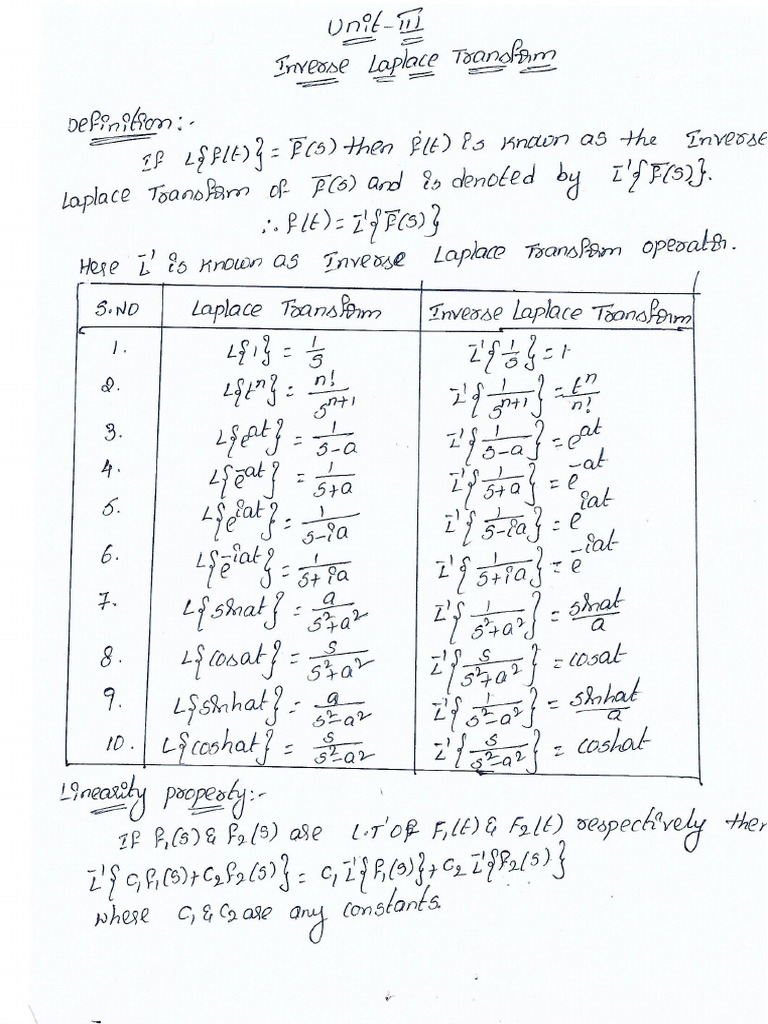 Unit-III
Inverse Laplace Transform
Definition:-
If L{f(t)} = f̄(s) then f(t) is known as the Inverse
Laplace Transform of f̄(s) and is denoted by L⁻¹{f̄(s)}.
∴ f(t) = L⁻¹{f̄(s)}
Here L⁻¹ is known as Inverse Laplace Transform operator.
S.NO Laplace Transform Inverse Laplace Transform
1. L{1} = 1/s L⁻¹{1/s} = 1
2. L{tⁿ} = n!/sⁿ⁺¹ L⁻¹{1/sⁿ⁺¹} = tⁿ/n!
3. L{e^at} = 1/(s-a) L⁻¹{1/(s-a)} = e^at
4. L{e^-at} = 1/(s+a) L⁻¹{1/(s+a)} = e^-at
5. L{e^iat} = 1/(s-ia) L⁻¹{1/(s-ia)} = e^iat
6. L{e^-iat} = 1/(s+ia) L⁻¹{1/(s+ia)} = e^-iat
7. L{sinat} = a/(s²+a²) L⁻¹{1/(s²+a²)} = sinat/a
8. L{cosat} = s/(s²+a²) L⁻¹{s/(s²+a²)} = cosat
9. L{sinhat} = a/(s²-a²) L⁻¹{1/(s²-a²)} = sinhat/a
10. L{coshat} = s/(s²-a²) L⁻¹{s/(s²-a²)} = coshat
Linearity property:-
If f₁(s) & f₂(s) are L.T' of F₁(t) & F₂(t) respectively then
L⁻¹{c₁f₁(s)+c₂f₂(s)} = c₁L⁻¹{f₁(s)}+c₂L⁻¹{f₂(s)}
where c₁ & c₂ are any constants.